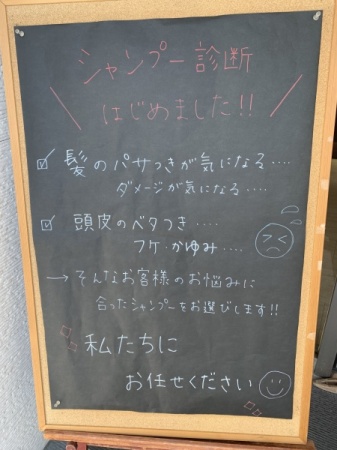 シャンプー診断
はじめました!!
☑ 髪のパサつきが気になる‥‥
ダメージが気になる‥‥
☑ 頭皮のベタつき‥‥
フケ・かゆみ‥‥
→ そんなお客様のお悩みに
合ったシャンプーをお選びします!!
私たちに
お任せください